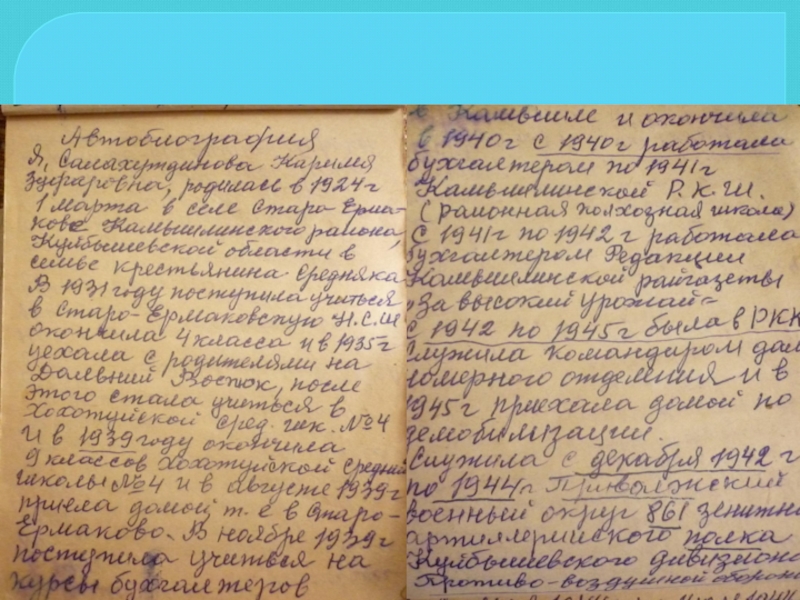 Автобиография
Я, Салахутдинова Карима
Зуфаровна, родилась в 1924 г
1 марта в селе Старо Ерма-
кове Камышлинского района,
Куйбышевской области в
семье крестьянина средняка
В 1931 году поступила учиться
в Старо-Ермаковскую Н.С.Ш
окончила 4 класса и в 1935 г
уехала с родителями на
Дальний Восток, после
этого стала учиться в
Хохотуйской сред. шк. №4
И в 1939 году окончила
9 классов Хохотуйской средней
школы №4 и в августе 1939 г
приела домой т. е в Старо-
Ермаково. В ноябре 1939 г
поступила учиться на
курсы бухгалтеров
в Камышле и окончила
в 1940 г С 1940 г работала
бухгалтером по 1941 г
Камышлинской Р. К. Ш.
(районная колхозная школа)
С 1941 г по 1942 г работала
бухгалтером Редакции
Камышлинской райгазеты
„За высокий урожай"
с 1942 по 1945 г была в РКК
Служила командиром даль
номерного отделения и в
1945 г приехала домой по
демобилизации.
Служила с декабря 1942 г
по 1944 г Приволжский
военный округ 861 зенитно
артиллерийского полка
Куйбышевского дивизиона
Противо-воздушной обороны